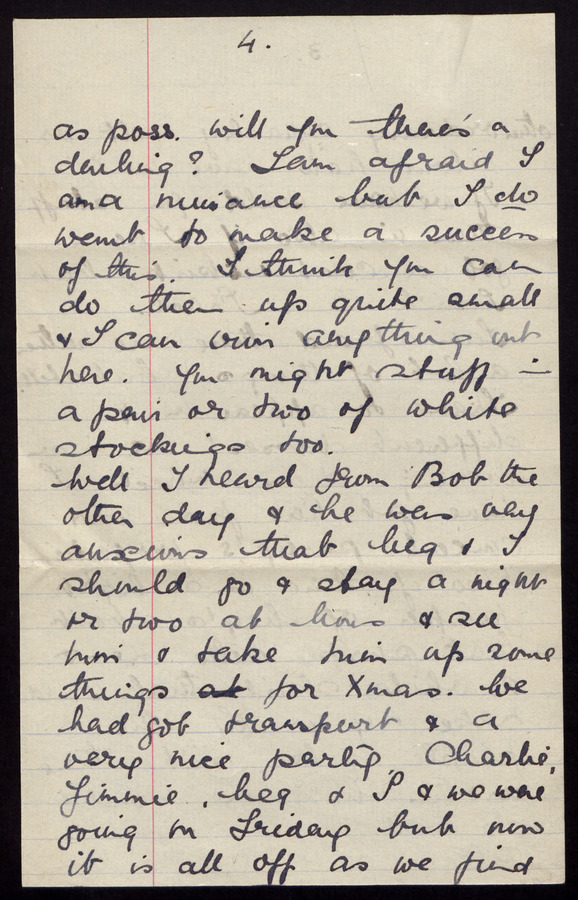 4.
as poss. will you there's a
darling? I am afraid I
am a nuisance but I do
want to make a success
of this. I think you can
do them up quite small
& I can iron anything out
here. You might stuff in
a pair or two of white
stockings too.
Well I heard from Bob the
other day & he was very
anxious that Meg & I
should go & stay a night
or two at & see
him & take him up some
things at for Xmas. We
had got transport & a
very nice party, Charlie,
Jimmie, Meg & I & we were
going on Friday but now
it is all off as we find